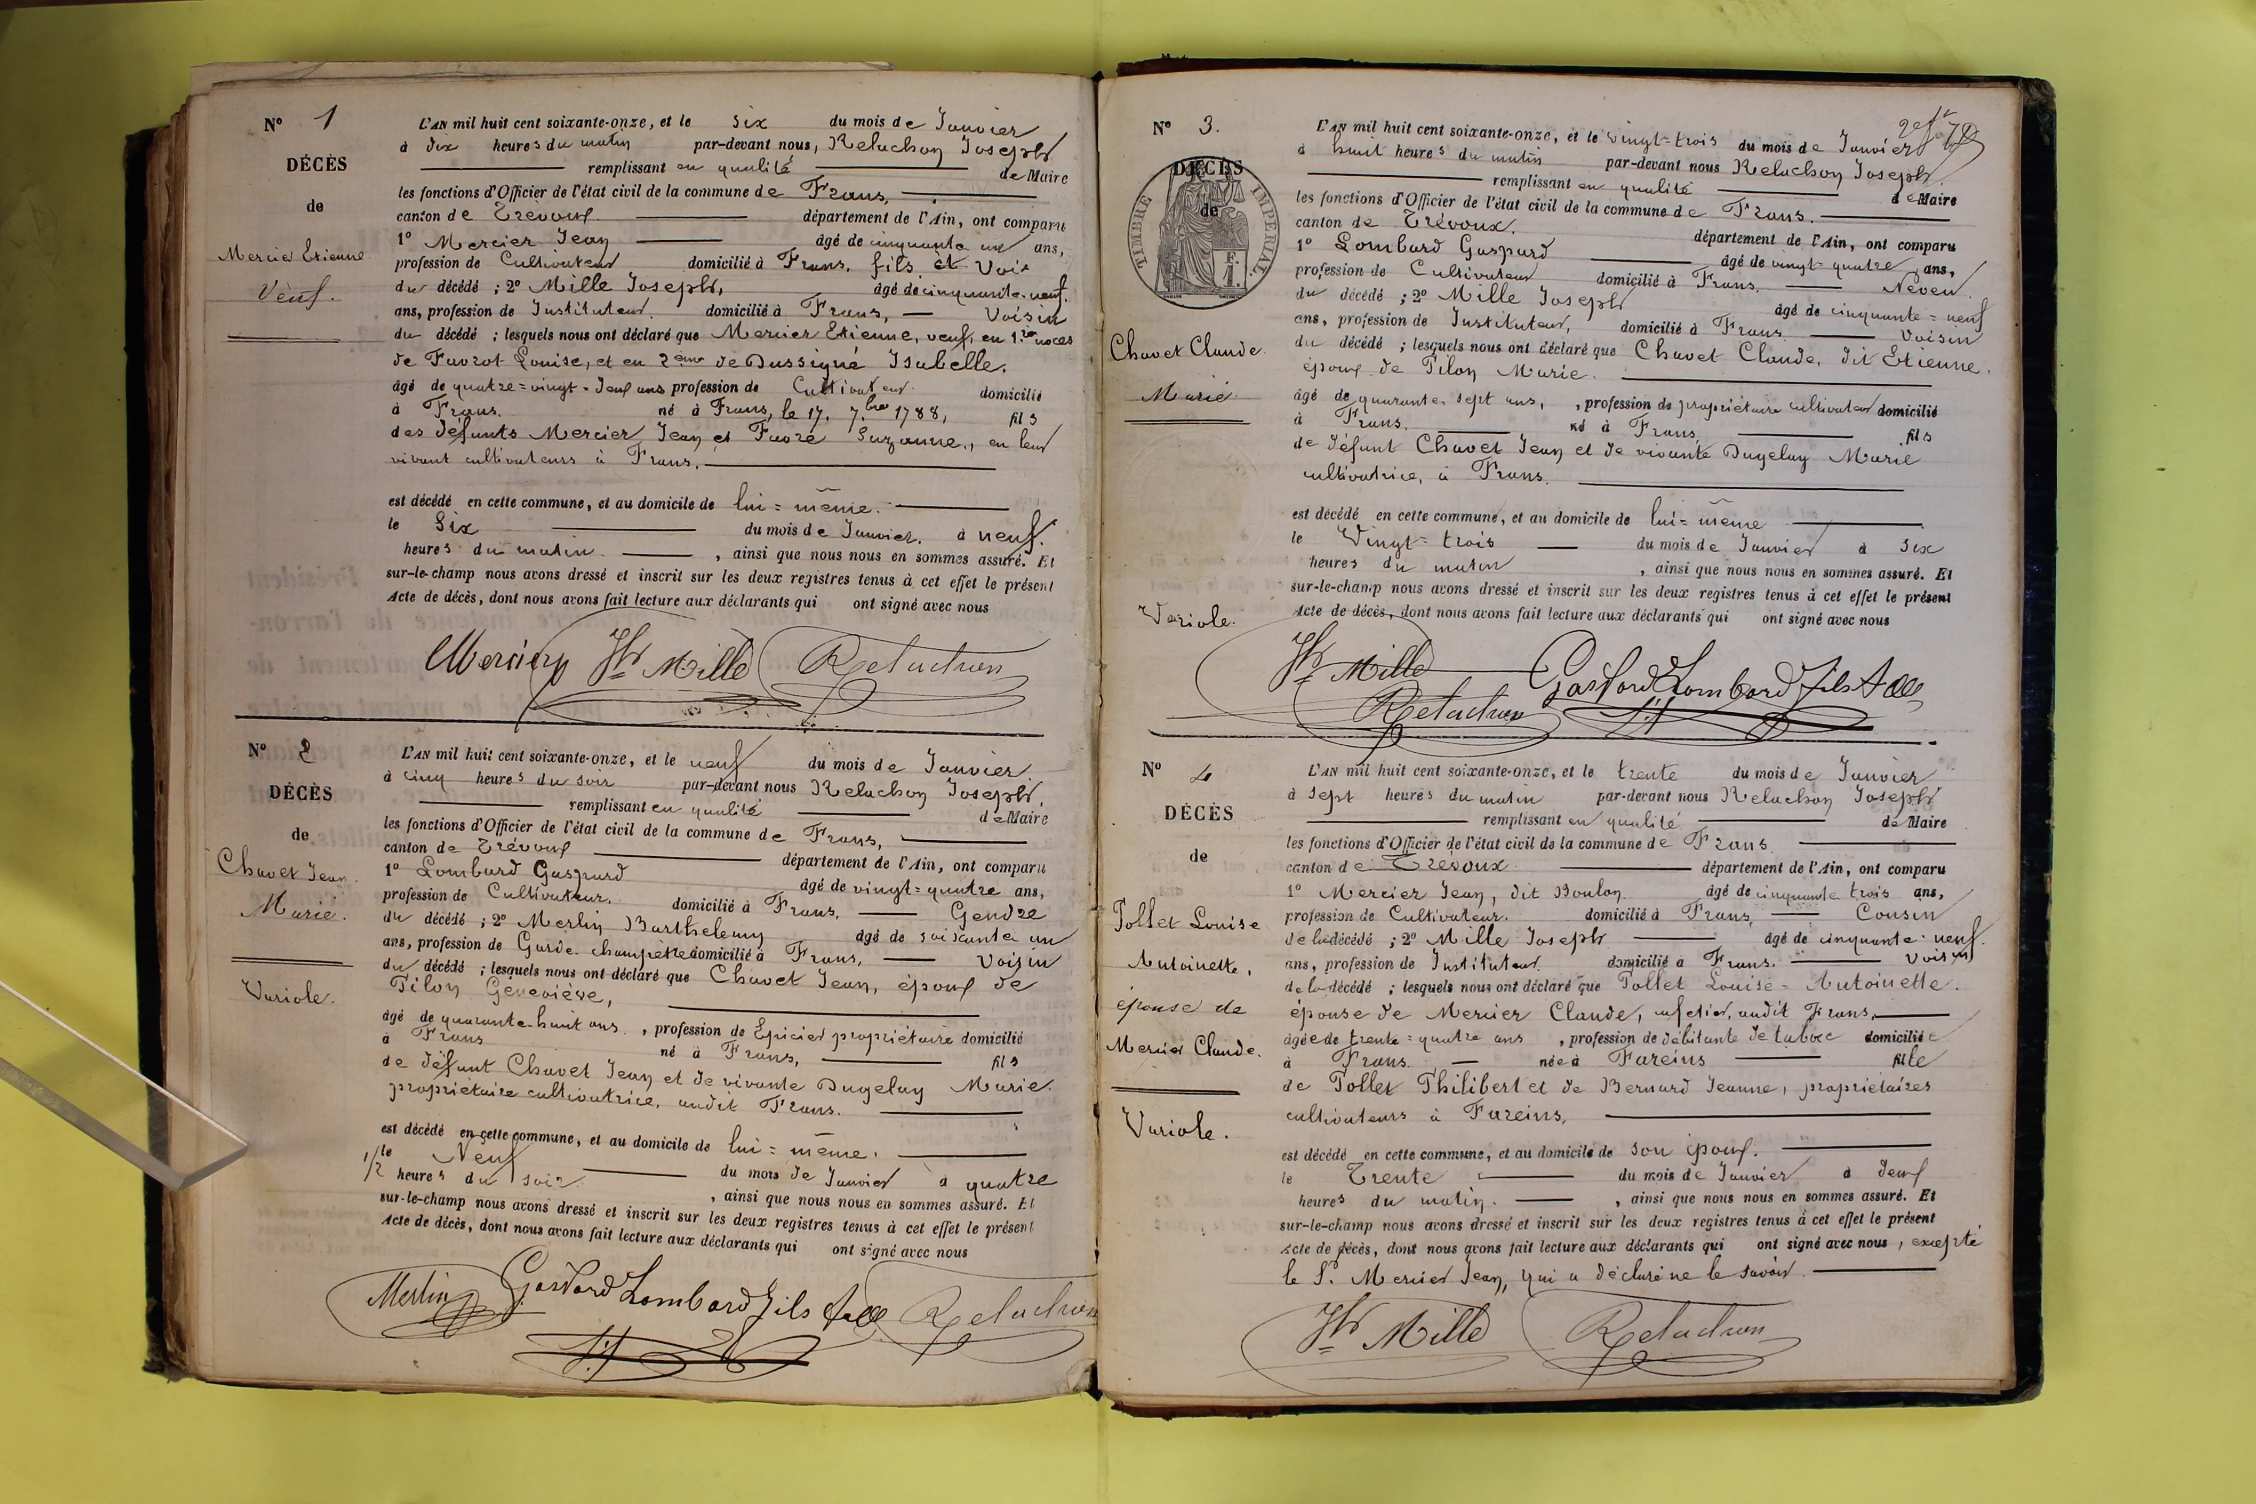 N° 1
DÉCÈS
de
Mercier Etienne
Veuf.
L'AN mil huit cent soixante-onze, et le six du mois de Janvier
à dix heures du matin par-devant nous, Reluchon Joseph
remplissant en qualité de Maire
les fonctions d'Officier de l'état civil de la commune de Frans,
canton de Trévoux département de l'Ain, ont comparu
1° Mercier Jean âgé de cinquante un ans,
profession de Cultivateur domicilié à Frans, fils et Voisin
du décédé ; 2° Mille Joseph, âgé de cinquante-neuf
ans, profession de Instituteur. domicilié à Frans, Voisin
du décédé ; lesquels nous ont déclaré que Mercier Etienne, veuf, en 1res noces
de Favrot Louise, et en 2eme de Dussigné Isabelle.
âgé de quatre=vingt-deux ans profession de Cultivateur domicilié
à Frans. né à Frans, le 17. 7bre 1788, fils
des défunts Mercier Jean et Favre Suzanne, en leur
vivant cultivateurs à Frans.
est décédé en cette commune, et au domicile de lui=même.
le Six du mois de Janvier. à neuf.
heures du matin. , ainsi que nous nous en sommes assuré. Et
sur-le-champ nous avons dressé et inscrit sur les deux registres tenus à cet effet le présent
Acte de décès, dont nous avons fait lecture aux déclarants qui ont signé avec nous
Mercier Jh Mille Reluchon
N° 2
DÉCÈS
de
Chavet Jean.
Marié.
Variole.
L'AN mil huit cent soixante-onze, et le neuf du mois de Janvier
à cinq heures du soir par-devant nous Reluchon Joseph,
remplissant en qualité de Maire
les fonctions d'Officier de l'état civil de la commune de Frans,
canton de Trévoux département de l'Ain, ont comparu
1° Lombard Gaspard âgé de vingt=quatre ans,
profession de Cultivateur. domicilié à Frans, Gendre
du décédé ; 2° Merlin Barthelemy âgé de soixante un
ans, profession de Garde-champêtre domicilié à Frans, Voisin
du décédé ; lesquels nous ont déclaré que Chavet Jean, époux de
Pilon Geneviève,
âgé de quarante-huit ans , profession de Epicier propriétaire domicilié
à Frans né à Frans, fils
de défunt Chavet Jean et de vivante Dugelay Marie.
propriétaire cultivatrice, audit Frans.
est décédé en cette commune, et au domicile de lui=même.
le Neuf du mois de Janvier à quatre
1/2 heures du soir. , ainsi que nous nous en sommes assuré. Et
sur-le-champ nous avons dressé et inscrit sur les deux registres tenus à cet effet le présent
Acte de décès, dont nous avons fait lecture aux déclarants qui ont signé avec nous
Merlin Gaspard Lombard fils Reluchon
N° 3.
DÉCÈS
de
TIMBRE IMPÉRIAL
F.
1.
Chavet Claude.
Marié
Variole.
L'AN mil huit cent soixante-onze, et le vingt=trois du mois de Janvier
à huit heures du matin par-devant nous Reluchon Joseph.
remplissant en qualité de Maire
les fonctions d'Officier de l'état civil de la commune de Frans.
canton de Trévoux. département de l'Ain, ont comparu
1° Lombard Gaspard âgé de vingt-quatre ans,
profession de Cultivateur domicilié à Frans. Neveu.
du décédé ; 2° Mille Joseph âgé de cinquante=neuf
ans, profession de Instituteur, domicilié à Frans. Voisin
du décédé ; lesquels nous ont déclaré que Chavet Claude, dit Etienne.
époux de Pilon Marie.
âgé de quarante-sept ans, , profession de propriétaire cultivateur domicilié
à Frans. né à Frans, fils
de défunt Chavet Jean et de vivante Dugelay Marie
cultivatrice, à Frans.
est décédé en cette commune, et au domicile de lui=même
le Vingt=trois du mois de Janvier à six
heures du matin , ainsi que nous nous en sommes assuré. Et
sur-le-champ nous avons dressé et inscrit sur les deux registres tenus à cet effet le présent
Acte de décès, dont nous avons fait lecture aux déclarants qui ont signé avec nous
Jh Mille Gaspard Lombard fils
Reluchon
N° 4
DÉCÈS
de
Pollet Louise
Antoinette,
épouse de
Mercier Claude.
Variole.
L'AN mil huit cent soixante-onze, et le trente du mois de Janvier
à sept heures du matin par-devant nous Reluchon Joseph
remplissant en qualité de Maire
les fonctions d'Officier de l'état civil de la commune de Frans.
canton de Trévoux département de l'Ain, ont comparu
1° Mercier Jean, dit Boulon. âgé de cinquante trois ans,
profession de Cultivateur. domicilié à Frans, Cousin
de la décédé ; 2° Mille Joseph âgé de cinquante-neuf
ans, profession de Instituteur. domicilié à Frans. Voisin
de la décédé ; lesquels nous ont déclaré que Pollet Louise-Antoinette.
épouse de Mercier Claude, cafetier, audit Frans,
âgée de trente=quatre ans , profession de débitante de tabac domiciliée
à Frans. née à Fareins fille
de Pollet Philibert et de Bernard Jeanne, propriétaires
cultivateurs à Fareins,
est décédé en cette commune, et au domicile de son époux.
le Trente du mois de Janvier à deux
heures du matin. , ainsi que nous nous en sommes assuré. Et
sur-le-champ nous avons dressé et inscrit sur les deux registres tenus à cet effet le présent
Acte de décès, dont nous avons fait lecture aux déclarants qui ont signé avec nous, excepté
le Sr. Mercier Jean, qui a déclaré ne le savoir.
Jh Mille Reluchon